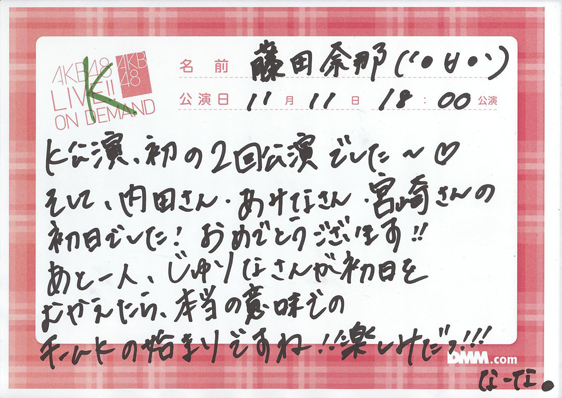 AKB48
LIVE!!
ON DEMAND
AKB
48
K
名前 藤田奈那(('●ㅂ●'))
公演日 11月11日 18:00公演
K公演、初の2回公演でした〜♡
そして、内田さん・あみなさん・宮崎さんの
初日でした!おめでとうございます!!
あと一人、じゅりなさんが初日を
むかえたら、本当の意味での
チームKの始まりですね!!楽しみだっ!!!
DMM.com
なーな。